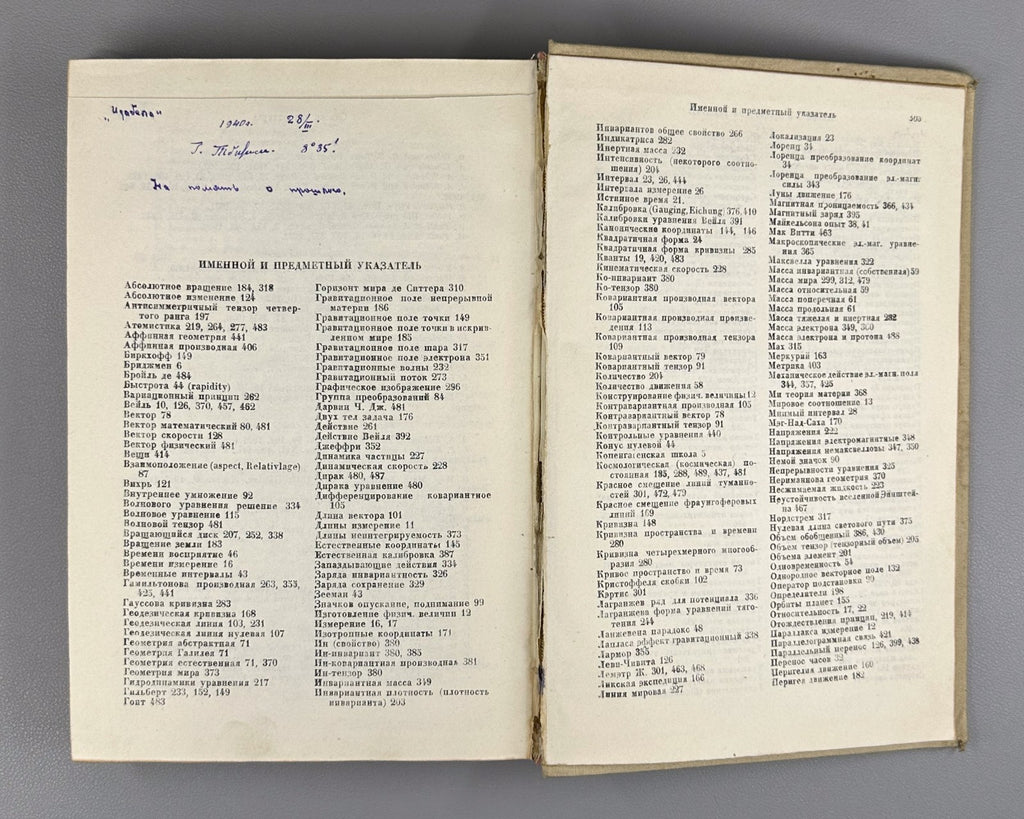 „Изабела"
1940г. 28/III.
Г. Тбилиси. 3°35!
На память о прошлом.
ИМЕННОЙ И ПРЕДМЕТНЫЙ УКАЗАТЕЛЬ
Абсолютное вращение 184, 318
Абсолютное изменение 124
Антисимметричный тензор четвер-
того ранга 197
Атомистика 219, 264, 277, 483
Аффинная геометрия 441
Аффинная производная 406
Биркхофф 149
Бриджмен 6
Бройль де 484
Быстрота 44 (rapidity)
Вариационный принцип 262
Вейль 10, 126, 370, 457, 462
Вектор 78
Вектор математический 80, 481
Вектор скорости 128
Вектор физический 481
Вещи 414
Взаимоположение (aspect, Relativlage)
87
Вихрь 121
Внутреннее умножение 92
Волнового уравнения решение 334
Волновое уравнение 115
Волновой тензор 481
Вращающийся диск 207, 252, 338
Вращение земли 183
Времени восприятие 46
Времени измерение 16
Временные интервалы 43
Гамильтонова производная 263, 355,
425, 441
Гауссова кривизна 283
Геодезическая кривизна 168
Геодезическая линия 103, 231
Геодезическая линия нулевая 107
Геометрия абстрактная 71
Геометрия Галилея 71
Геометрия естественная 71, 370
Геометрия мира 373
Гидродинамики уравнения 217
Гильберт 233, 152, 149
Гонт 483
Горизонт мира де Ситтера 310
Гравитационное поле непрерывной
материи 186
Гравитационное поле точки 149
Гравитационное поле точки в искрив-
ленном мире 185
Гравитационное поле шара 317
Гравитационное поле электрона 351
Гравитационные волны 232
Гравитационный поток 273
Графическое изображение 296
Группа преобразований 84
Дарвин Ч. Дж. 481
Двух тел задача 176
Действие 261
Действие Вейля 392
Джеффри 352
Динамика частицы 227
Динамическая скорость 228
Дирак 480, 487
Дирака уравнение 480
Дифференцирование ковариантное
105
Длина вектора 101
Длины измерение 11
Длины неинтегрируемость 373
Естественные координаты 145
Естественная калибровка 387
Запаздывающие действия 334
Заряда инвариантность 326
Заряда сохранение 329
Зееман 43
Значков опускание, поднимание 99
Изготовление физич. величин 12
Измерение 16, 17
Изотропные координаты 171
Ин (свойство) 380
Ин-инвариант 380, 385
Ин-ковариантная производная 381
Ин-тензор 380
Инвариантная масса 349
Инвариантная плотность (плотность
инварианта) 203
Именной и предметный указатель 503
Инвариантов общее свойство 266
Индикатриса 282
Инертная масса 232
Интенсивность (некоторого соотно-
шения) 204
Интервал 23, 26, 444
Интервала измерение 26
Истинное время 21.
Калибровка (Gauging, Eichung) 376, 410
Калибровки уравнения Вейля 391
Канонические координаты 144, 146
Квадратичная форма 24
Квадратичная форма кривизны 285
Кванты 19, 420, 483
Кинематическая скорость 228
Ко-инвариант 380
Ко-тензор 380
Ковариантная производная вектора
105
Ковариантная производная произве-
дения 113
Ковариантная производная тензора
109
Ковариантный вектор 79
Ковариантный тензор 91
Количество 204
Количество движения 58
Конструирование физич. величины 12
Контравариантная производная 105
Контравариантный вектор 78
Контравариантный тензор 91
Контрольные уравнения 440
Конус нулевой 44
Копенгагенская школа 5
Космологическая (космическая) по-
стоянная 185, 288, 489, 437, 481
Красное смещение линий туманно-
стей 301, 472, 479
Красное смещение фраунгоферовых
линий 169
Кривизна 148
Кривизна пространства и времени
280
Кривизна четырехмерного многооб-
разия 280
Кривое пространство и время 73
Кристоффеля скобки 102
Кэртис 301
Лагранжев ряд для потенциала 336
Лагранжева форма уравнений тяго-
тения 244
Ланжевена парадокс 48
Лапласа эффект гравитационный 338
Лармор 385
Леви-Чивита 126
Леметр Ж. 301, 463, 468
Ликская экспедиция 166
Линия мировая 227
Локализация 23
Лоренц 34
Лоренца преобразование координат
34
Лоренца преобразование эл.-магн.
силы 343
Луны движение 176
Магнитная проницаемость 366, 434
Магнитный заряд 395
Майкельсона опыт 38, 41
Мак Витти 463
Макроскопические эл.-маг. уравне-
ния 365
Максвелла уравнения 322
Масса инвариантная (собственная) 59
Масса мира 299, 312, 479
Масса относительная 59
Масса поперечная 61
Масса продольная 61
Масса тяжелая и инертная 232
Масса электрона 349, 360
Масса электрона и протона 488
Мах 315
Меркурий 163
Метрика 403
Механическое действие эл.-магн. поля
344, 357, 425
Ми теория материи 368
Мировое соотношение 13
Мнимый интервал 28
Мэг-Над-Саха 170
Напряжения 222
Напряжения электромагнитные 348
Напряжения немаксвелловы 347, 350
Немой значок 90
Непрерывности уравнения 325
Нериманнова геометрия 370
Несжимаемая жидкость 223
Неустойчивость вселенной Эйнштей-
на 467
Нордстрем 317
Нулевая длина светового пути 375
Объем обобщенный 386, 430
Объем тензор (тензорный объем) 205
Объема элемент 201
Одновременность 54
Однородное векторное поле 132
Оператор подстановки 99
Определители 198
Орбиты планет 155
Относительность 17, 22
Отождествления принцип, 219, 414
Параллакса измерение 12
Параллелограммная связь 421
Параллельный перенос 126, 399, 438
Перенос часов 32
Перигелия движение 160
Перигея движение 182